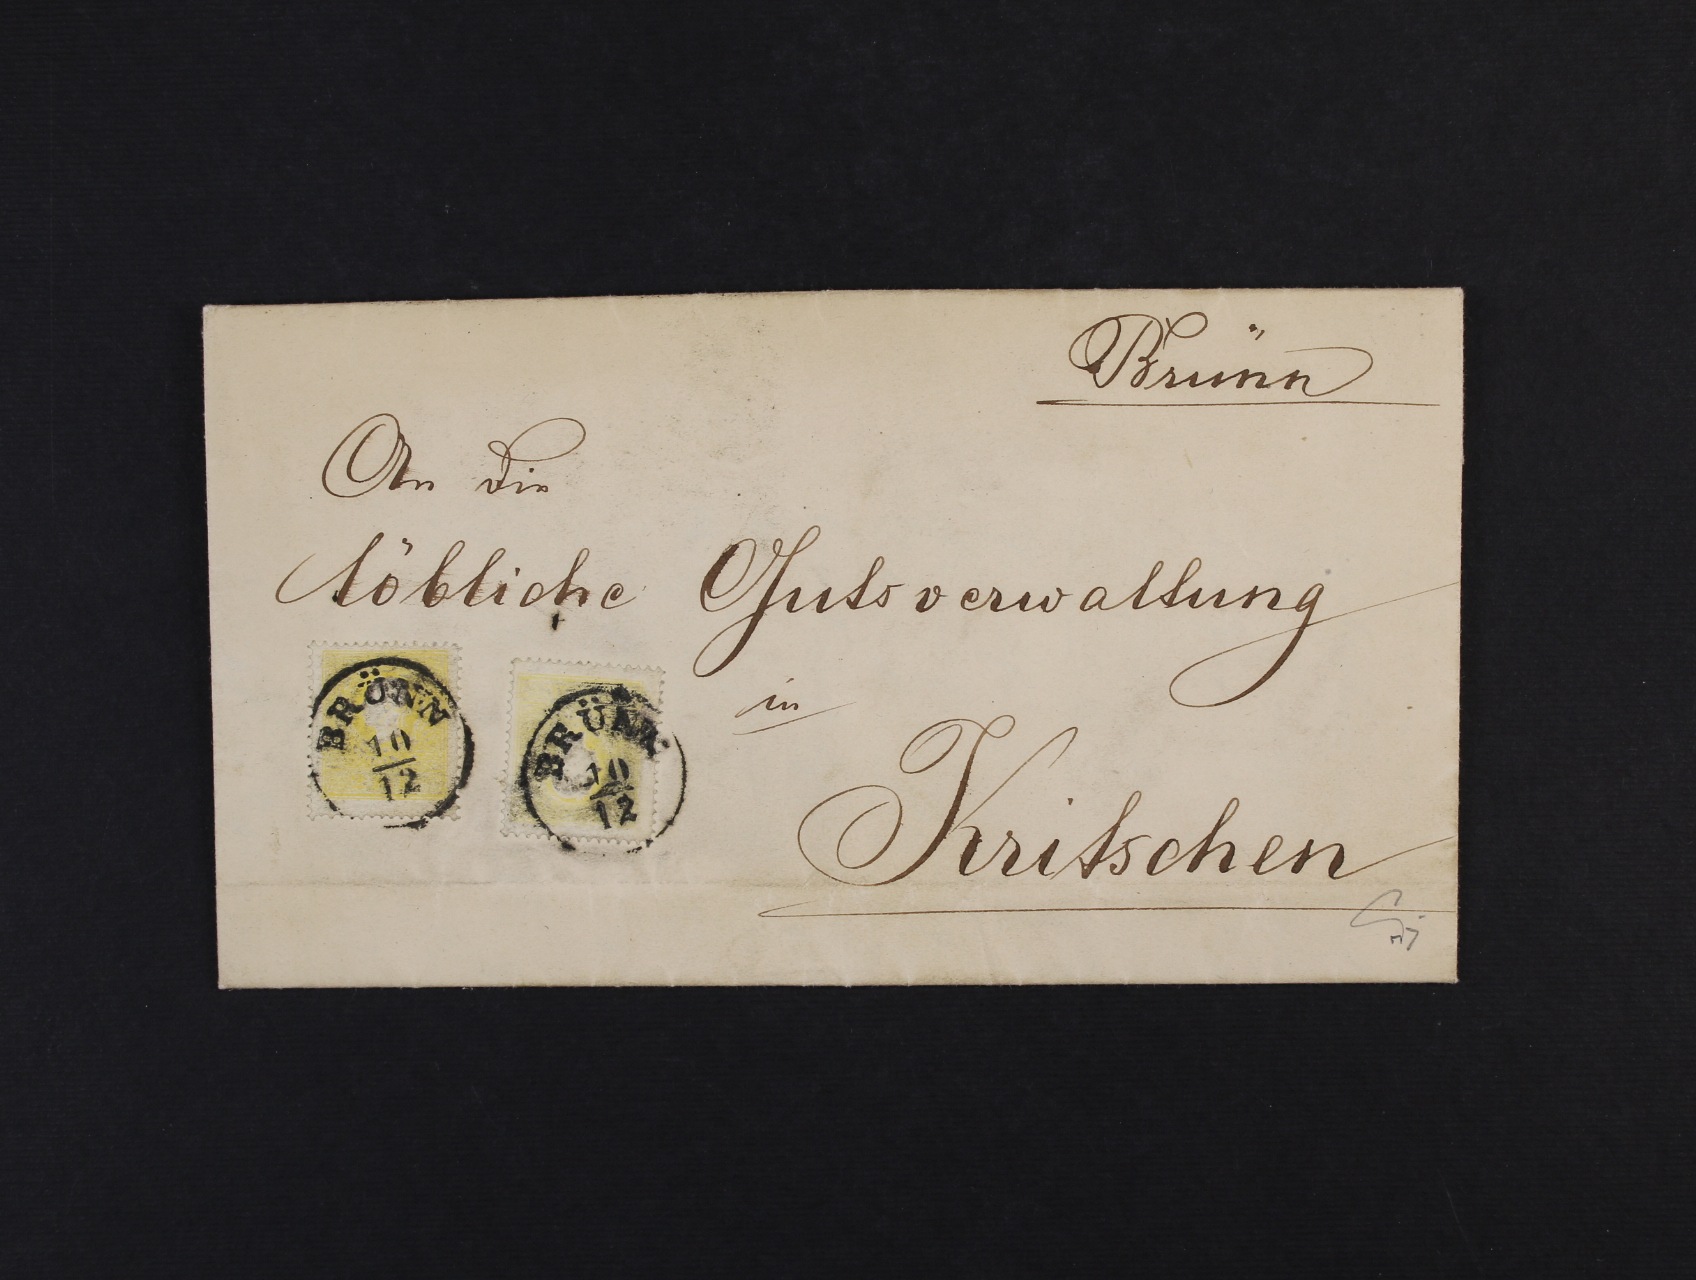 Brünn
An die
löbliche Gutsverwaltung
in
Kritschen
BRÜNN
10
12
BRÜNN
10
12